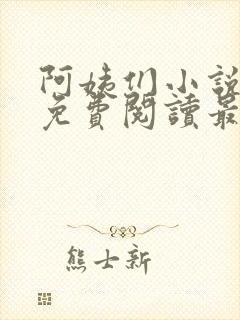 阿姨们小說
免費閱讀最
熊士新